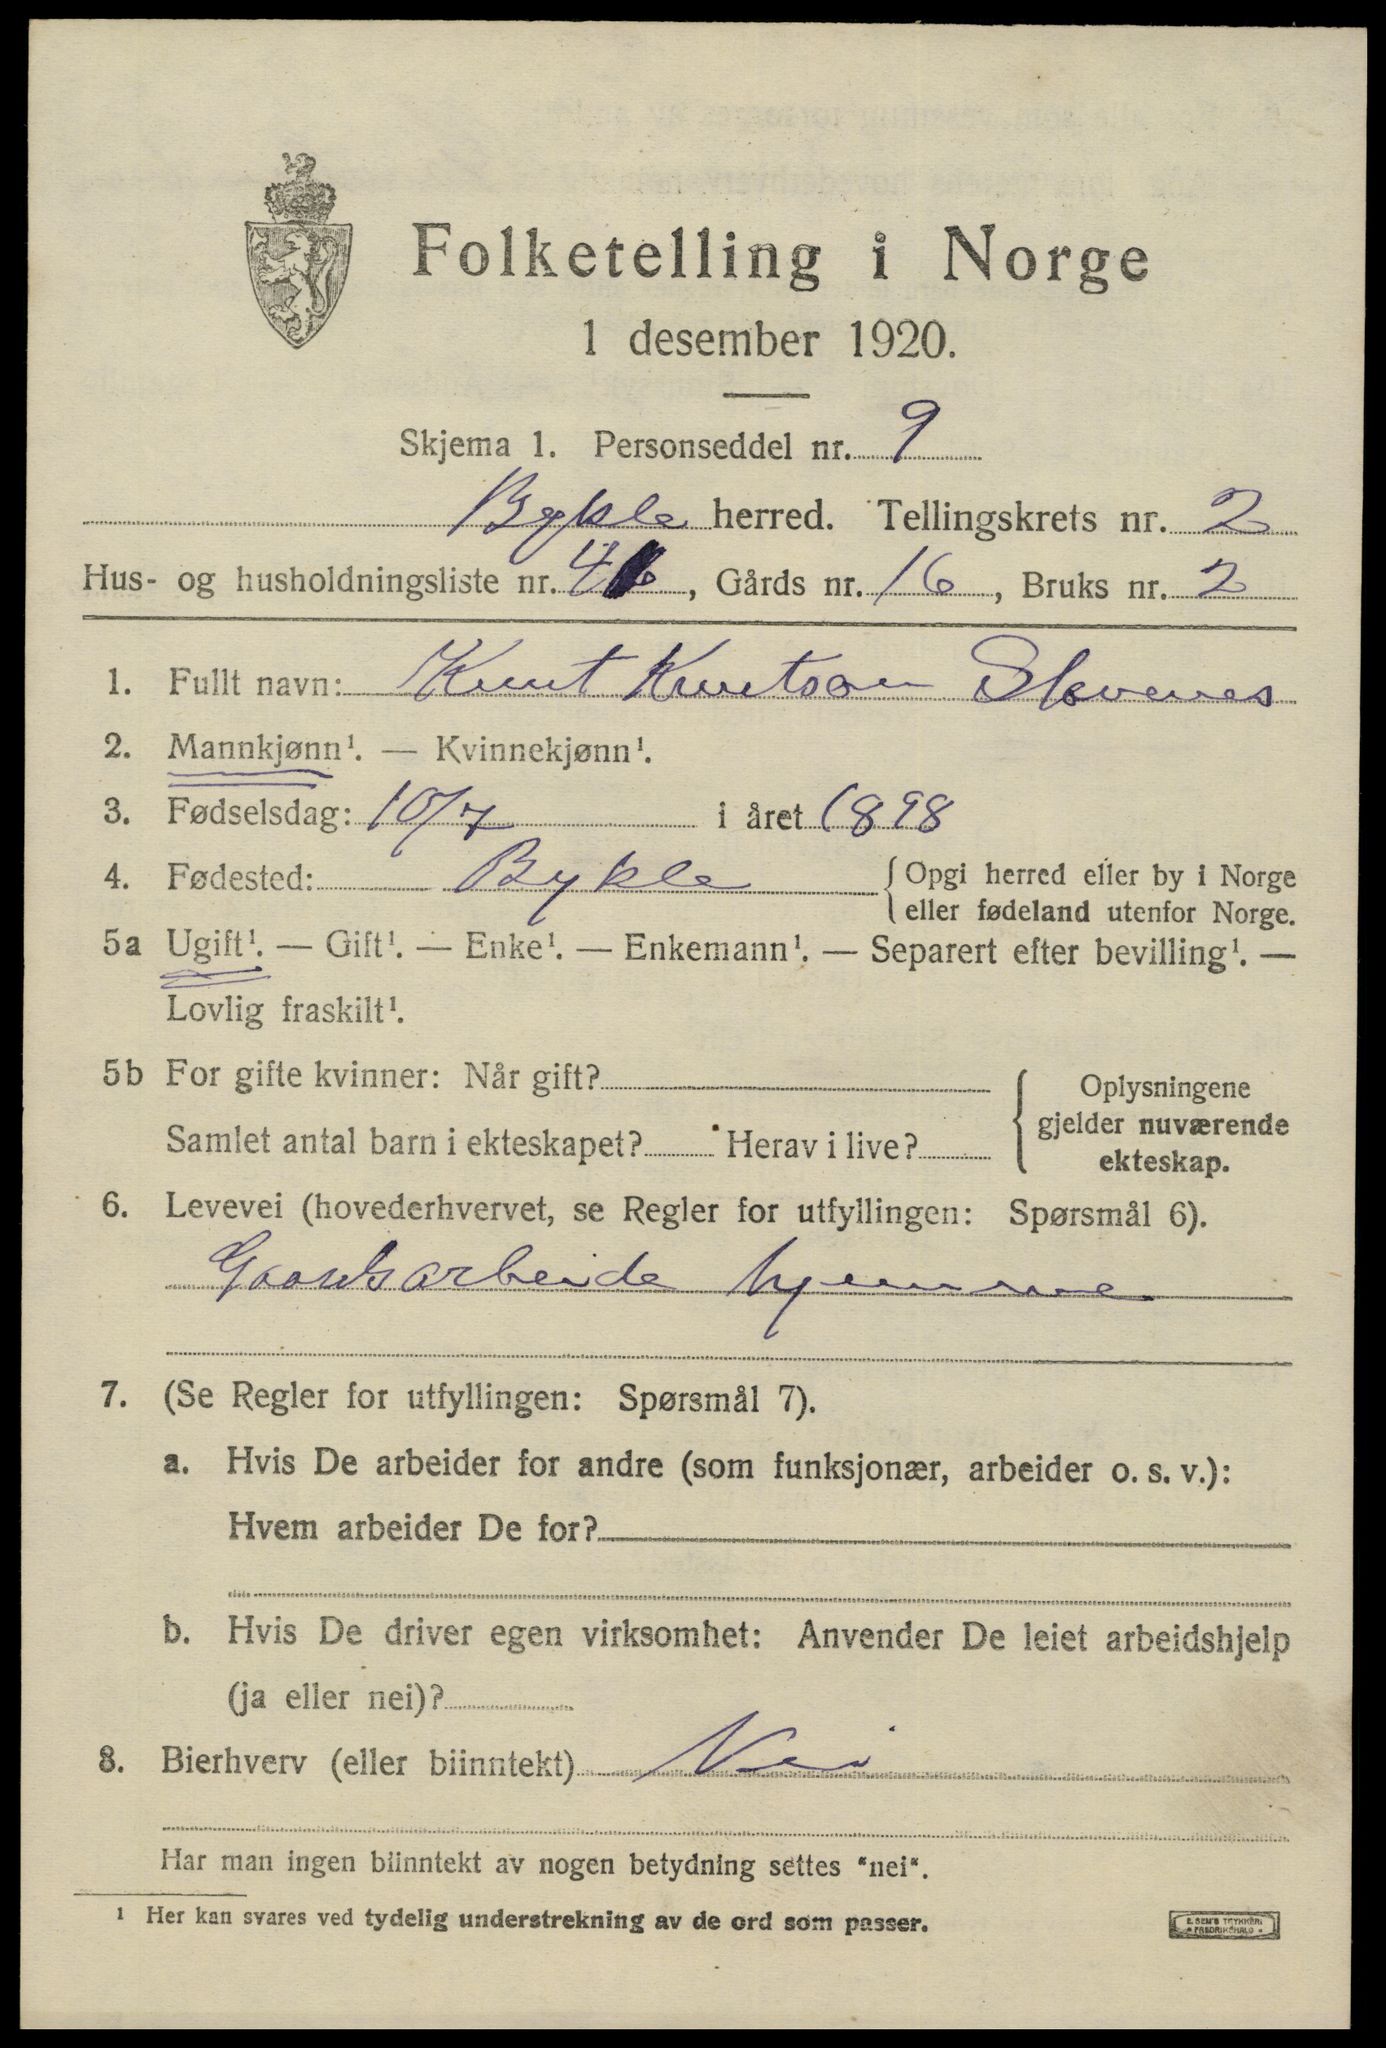 Folketelling i Norge
1 desember 1920.
Skjema 1. Personseddel nr. 9
Bykle herred. Tellingskrets nr. 2
Hus- og husholdningsliste nr. 46, Gårds nr. 16, Bruks nr. 2
1. Fullt navn: Knut Knutson
2. Mannkjønn¹. — Kvinnekjønn¹.
3. Fødselsdag: 10/7 i året 1898
4. Fødested: Bykle { Opgi herred eller by i Norge
eller fødeland utenfor Norge.
5a Ugift¹. — Gift¹. — Enke¹. — Enkemann¹. — Separert efter bevilling¹. —
Lovlig fraskilt¹.
5b For gifte kvinner: Når gift?
Samlet antal barn i ekteskapet? Herav i live?
{ Oplysningene
gjelder nuværende
ekteskap.
6. Levevei (hovederhvervet, se Regler for utfyllingen: Spørsmål 6).
Gaardsarbeide hjemme
7. (Se Regler for utfyllingen: Spørsmål 7).
a. Hvis De arbeider for andre (som funksjonær, arbeider o. s. v.):
Hvem arbeider De for?
b. Hvis De driver egen virksomhet: Anvender De leiet arbeidshjelp
(ja eller nei)?
8. Bierhverv (eller biinntekt) Nei
Har man ingen biinntekt av nogen betydning settes "nei".
¹ Her kan svares ved tydelig understrekning av de ord som passer.
E. SEM'S TRYKKERI
FREDRIKSHALD